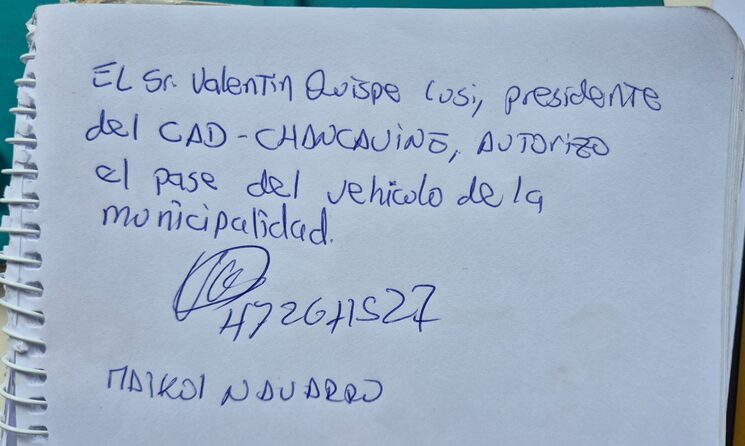 EL Sr. Valentin Quispe Cusi, presidente
del CAD-CHANCAVINE, AUTORIZO
el pase del vehiculo de la
municipalidad.
MAIKOL NAVARRO